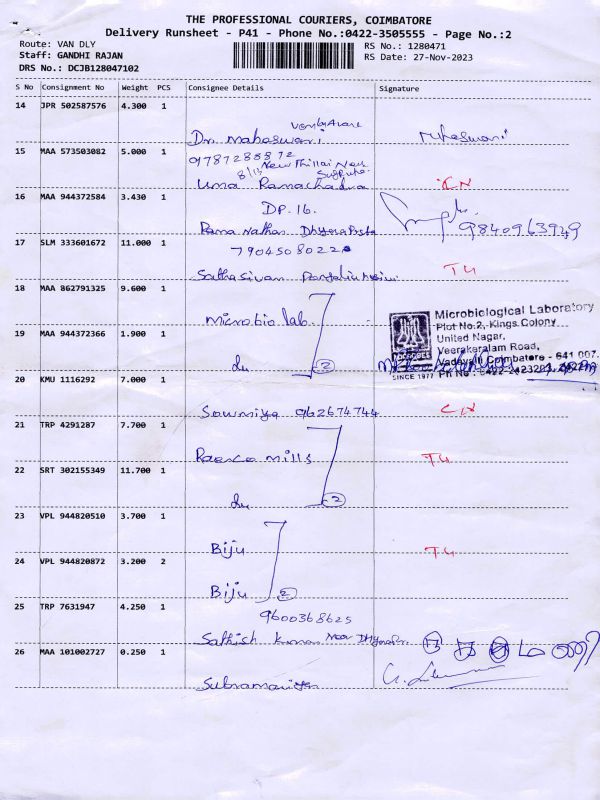 THE PROFESSIONAL COURIERS, COIMBATORE
Delivery Runsheet - P41 - Phone No.:0422-3505555 - Page No.:2
Route: VAN DLY
Staff: GANDHI RAJAN
DRS No.: DCJB128047102
RS No.: 1280471
RS Date: 27-Nov-2023
S No Consignment No Weight PCS Consignee Details Signature
14 JPR 502587576 4.300 1
Dr. Maheswari
15 MAA 573503082 5.000 1
9787288872
8/13 New Thillai
Uma Ramachadra CN
16 MAA 944372584 3.430 1
DP.16.
Rama Nathan 9840963949
17 SLM 333601672 11.000 1
7904508022
Sathasivan T4
18 MAA 862791325 9.600 1
microbio lab.
Microbiological Laboratory
Plot No.2, Kings Colony
United Nagar,
Veerakeralam Road,
Vadavalli Coimbatore - 641 007.
SINCE 1977
19 MAA 944372366 1.900 1
du 2
20 KMU 1116292 7.000 1
Sowmiya 962674744 CN
21 TRP 4291287 7.700 1
mills T4
22 SRT 302155349 11.700 1
du 2
23 VPL 944820510 3.700 1
Biju T4
24 VPL 944820872 3.200 2
Biju 2
25 TRP 7631947 4.250 1
9600368625
Sathish Kumar Near
26 MAA 101002727 0.250 1
Subramaniyan